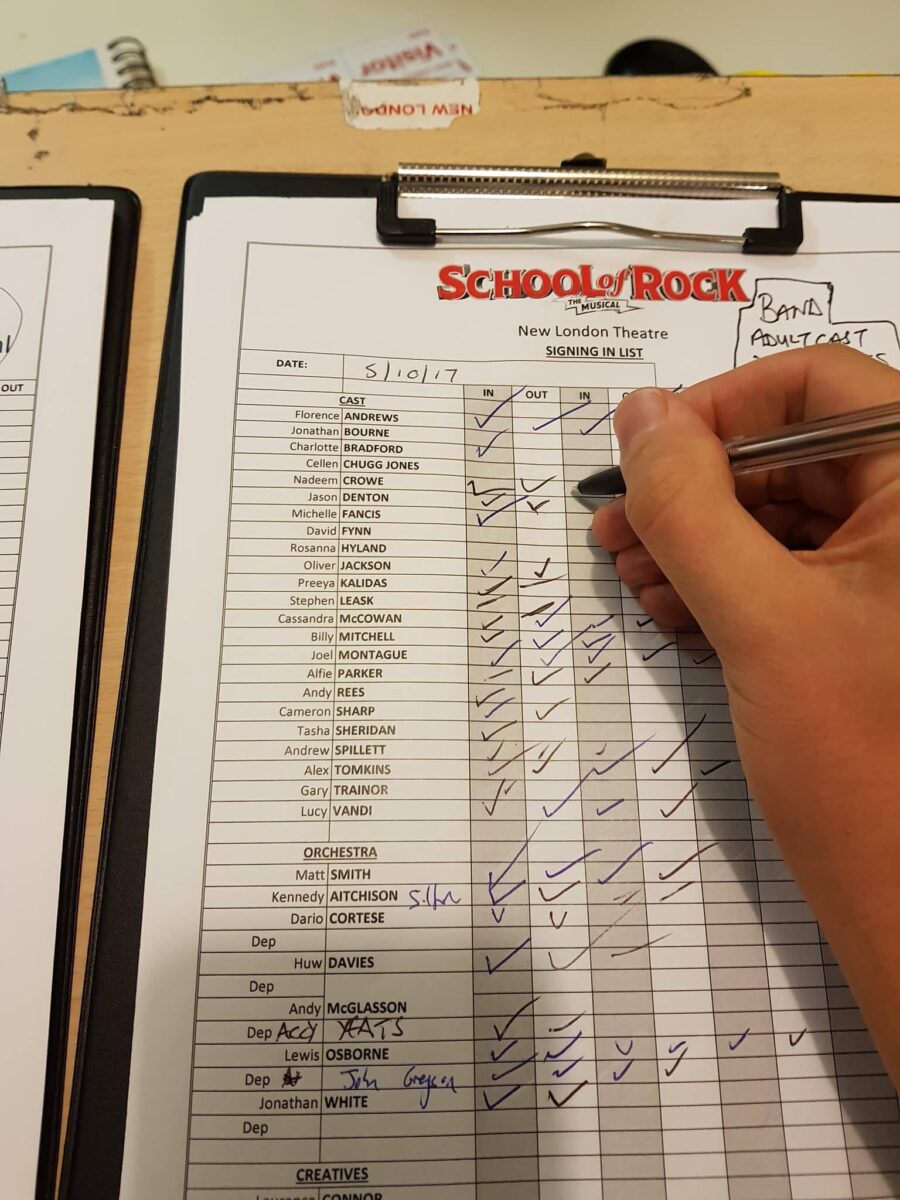 Visitor
NEW LONDO
SCHOOL of ROCK
THE MUSICAL
New London Theatre
SIGNING IN LIST
BAND
ADULT CAST
OUT
DATE: 5/10/17
CAST IN OUT IN
Florence ANDREWS
Jonathan BOURNE
Charlotte BRADFORD
Cellen CHUGG JONES
Nadeem CROWE
Jason DENTON
Michelle FANCIS
David FYNN
Rosanna HYLAND
Oliver JACKSON
Preeya KALIDAS
Stephen LEASK
Cassandra McCOWAN
Billy MITCHELL
Joel MONTAGUE
Alfie PARKER
Andy REES
Cameron SHARP
Tasha SHERIDAN
Andrew SPILLETT
Alex TOMKINS
Gary TRAINOR
Lucy VANDI
ORCHESTRA
Matt SMITH
Kennedy AITCHISON
Dario CORTESE
Dep
Huw DAVIES
Dep
Andy McGLASSON
Dep YEATS
Lewis OSBORNE
Dep John
Jonathan WHITE
Dep
CREATIVES
CONNOR